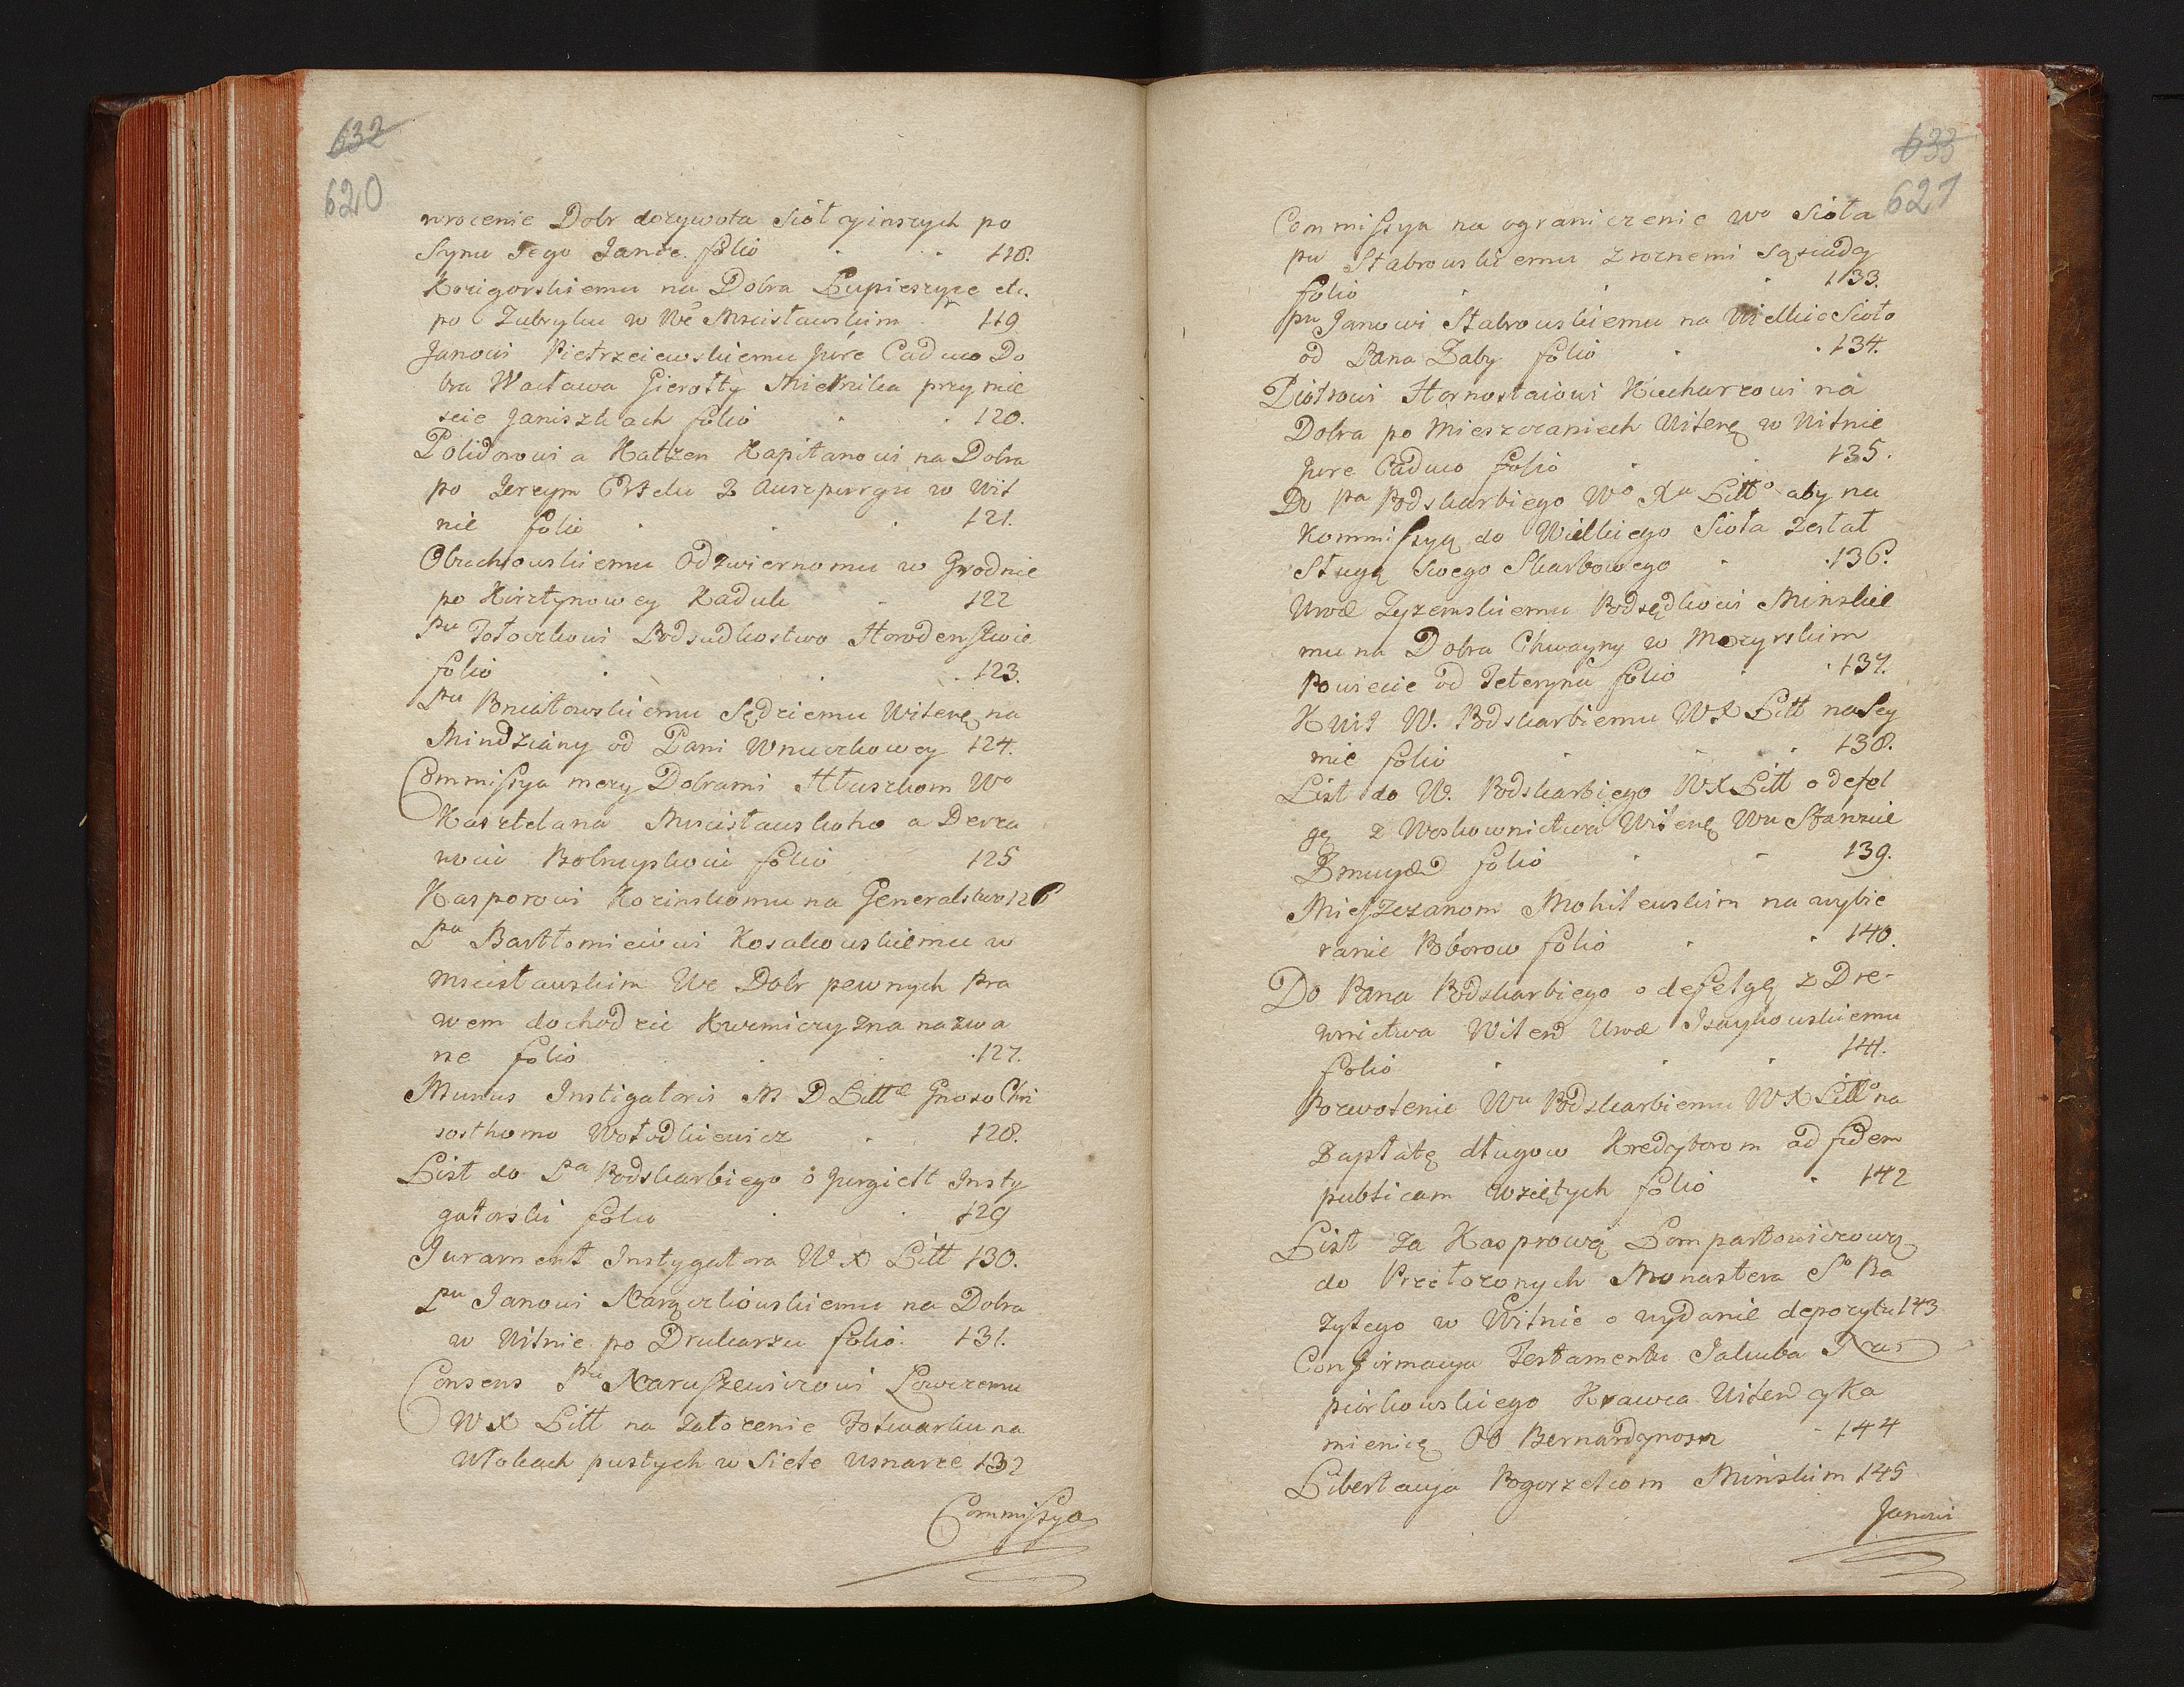 632
620
wrocenie Dobr dozywota Sioł czinszych po
Synu Jego Janie folio 118.
Korigorskiemu na Dobra Łupieszyce etc.
po Zubryku w We Mscisławskim 119
Janowi Pietrzeiewskiemu Jure Caduco Do
bra Wacława Gierołty Mielnika przy mie
scie Janiszkach folio 120.
Polidorowi a Katzen Kapitanowi na Dobra
po Jerzym z Auszpurgu w Wil
nie folio 121.
Obuchowskiemu Odzwiernomu w Grodnie
po Kirztynowey Kaduk 122
Pu Potoczkowi Podsudkostwo Horodenskie
folio 123.
Pu Poniatowskiemu Sędziemu Witenę na
Mindziany od Pani Wnuczkowey 124.
Commissya mezy Dobrami Hłuszkom Wo
Kasztelana Mscisławskoho a Derza
wcu Bobruyskoiu folio 125
Kasporowi Kozinskomu na Generalstwo 126
Pu Bartłomieiowi Kosakowskiemu w
Mscisławskim We Dobr pewnych Pra
wem dochodzic Kuzmiczyzna nazwa
ne folio 127.
Munus Instigatoris M D Littæ Gnoso Chri
sosthomo Wołodkiewicz 128.
List do Pa Podskarbiego o Jurgielt Insty
gatorski folio 129
Jurament Instygatora W X Litt 130.
Pu Janowi Karączkowskiemu na Dobra
w Wilnie po Drukarzu folio. 131.
Consens Pu Naruszewiczowi Łowczemu
W X Litt na załozenie Folwarku na
Włokach pustych w Siele Usnarze 132
Commissya
633
621
Commissya na ograniczenie Wo Sioła
pu Stabrowskiemu z roznemi Sąsiady
folio 133.
pu Janowi Stabrowskiemu na Wielkie Sioło
od Pana Zaby folio 134.
Piotrowi Hornostaiowi Kucharzowi na
Dobra po Mieszczaniech Witenę w Wilnie
Jure Caduco folio 135.
Do Pa Podskarbiego Wo Xa Litto aby na
Kommissyą do Wielkiego Sioła Zesłał
Sługę Swego Skarbowego 136.
Urod Zyzemskiemu Podsędkowi Minskie
mu na Dobra Chwayny w Mozyrskim
Powiecie od Teteryna folio 137.
Kwit W. Podskarbiemu W X Litt na Sey
mie folio 138.
List do W. Podskarbiego W X Litt o defal
gę z Woskownictwa Witenę Wu Stanzie
Zmuyd folio 139.
Mieszczanom Mohilewskim na wybie
ranie Poborow folio 140.
Do Pana Podskarbiego o defelgę z Dre-
wnictwa Witen Urod Isaykowskiemu
folio 141.
Pozwolenie Wu Podskarbiemu W X Litto na
Zapłatę długow Kredytorom ad fidem
publicam wziętych folio 142
List za Kasprową Lompartowiczową
do Przełozonych Monastera So Ba
zylego w Wilnie o wydanie depozytu 143
Confirmacya Testamentu Jakuba Kra
piorkowskiego Krawca Witen y Ka
mienicę OO Bernardynom 144
Libertacya Pogorzelcom Minskim 145
Janowi